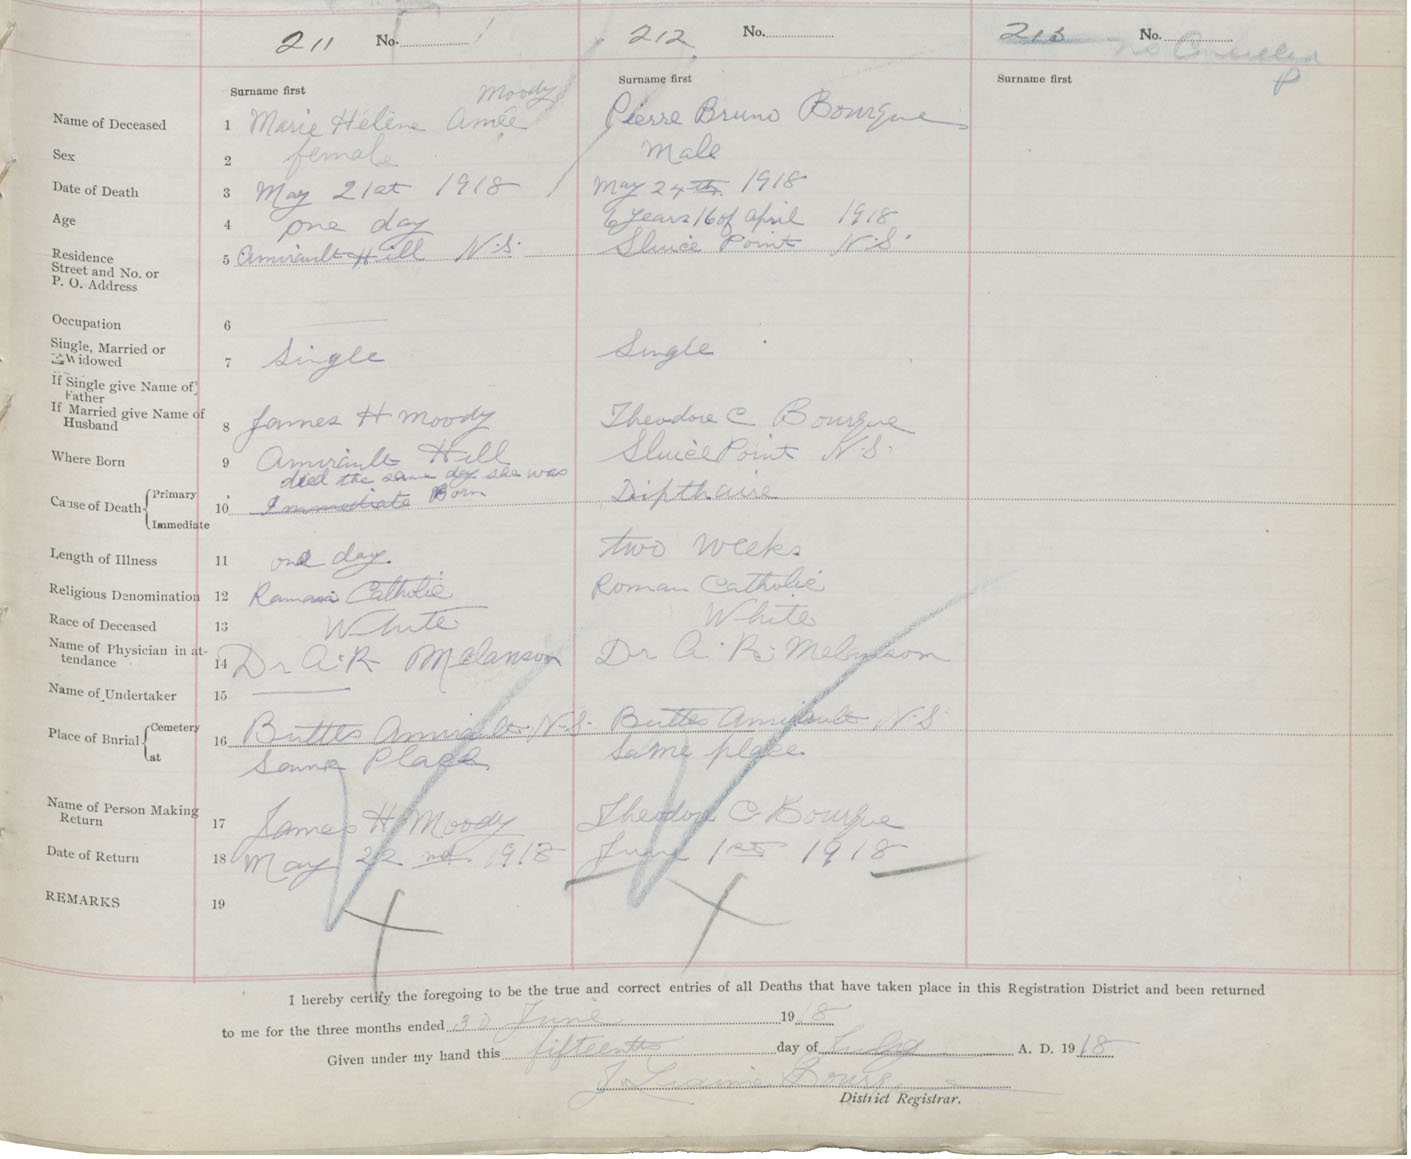 211 No. 212 No. 213 No. No Cancelled
Surname first Surname first Surname first
Moody
Name of Deceased 1 Marie Hélène Amèe Pierre Bruno Bourque
Sex 2 female Male
Date of Death 3 May 21st 1918 May 24th 1918
Age 4 one day 6 years 16 of April 1918
Residence
Street and No. or
P. O. Address 5 Amirault Hill N.S. Sluice Point N.S.
Occupation 6
Single, Married or
Widowed 7 Single Single
If Single give Name of
Father
If Married give Name of
Husband 8 James H Moody Theodore C Bourque
Where Born 9 Amirault Hill Sluice Point N.S.
died the same day she was
Cause of Death Primary 10 Immediate Born Dipthairie
Immediate
Length of Illness 11 one day. two weeks
Religious Denomination 12 Roman Catholic Roman Catholic
Race of Deceased 13 White White
Name of Physician in at-
tendance 14 Dr A. R. Melanson Dr A. R. Melanson
Name of Undertaker 15
Place of Burial Cemetery 16 Buttes Amirault N.S. Buttes Amirault N.S
at Same Place Same place
Name of Person Making
Return 17 James H Moody Theodore C Bourque
Date of Return 18 May 22nd 1918 June 1st 1918
REMARKS 19
I hereby certify the foregoing to be the true and correct entries of all Deaths that have taken place in this Registration District and been returned
to me for the three months ended 30 June 1918
Given under my hand this fifteenth day of July A. D. 1918
J Bourq
District Registrar.